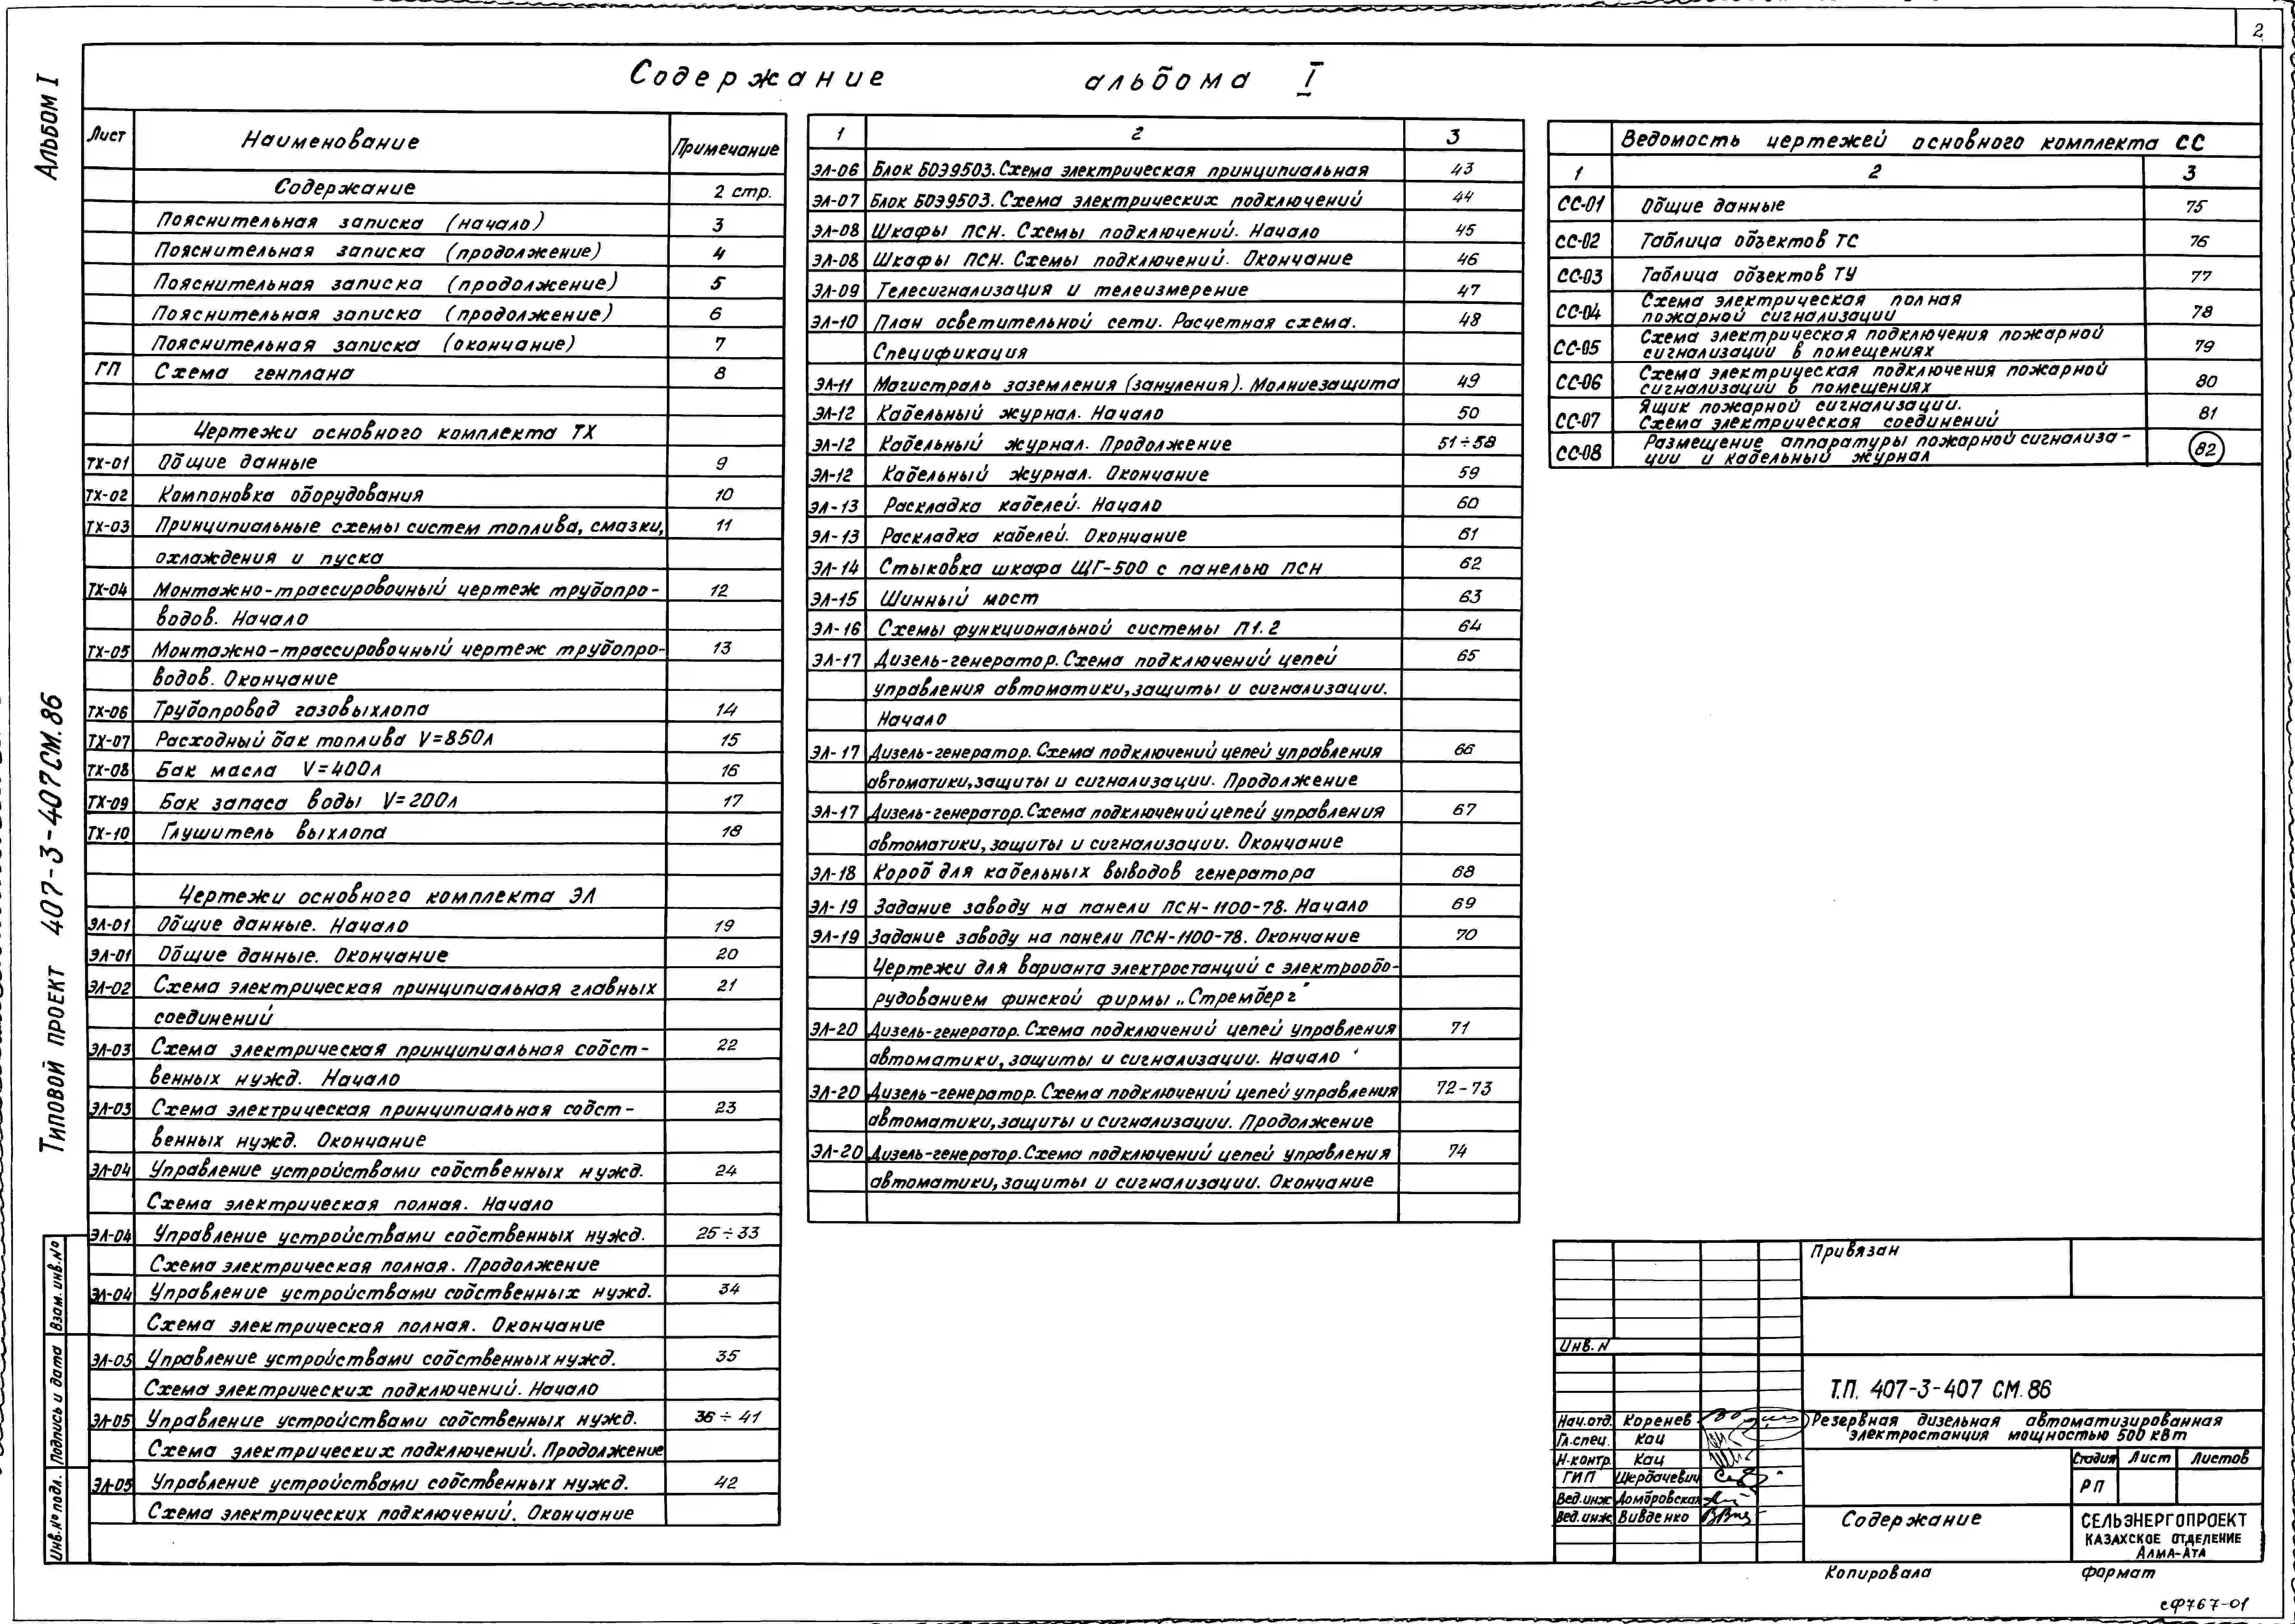 2
Альбом I
Типовой проект 407-3-407СМ.86
Содержание альбома I
Лист Наименование Примечание
Содержание 2 стр.
Пояснительная записка (начало) 3
Пояснительная записка (продолжение) 4
Пояснительная записка (продолжение) 5
Пояснительная записка (продолжение) 6
Пояснительная записка (окончание) 7
ГП Схема генплана 8
Чертежи основного комплекта ТХ
ТХ-01 Общие данные 9
ТХ-02 Компоновка оборудования 10
ТХ-03 Принципиальные схемы систем топлива, смазки, 11
охлаждения и пуска
ТХ-04 Монтажно-трассировочный чертеж трубопро- 12
водов. Начало
ТХ-05 Монтажно-трассировочный чертеж трубопро- 13
водов. Окончание
ТХ-06 Трубопровод газовыхлопа 14
ТХ-07 Расходный бак топлива V=850л 15
ТХ-08 Бак масла V=400л 16
ТХ-09 Бак запаса воды V=200л 17
ТХ-10 Глушитель выхлопа 18
Чертежи основного комплекта ЭЛ
ЭЛ-01 Общие данные. Начало 19
ЭЛ-01 Общие данные. Окончание 20
ЭЛ-02 Схема электрическая принципиальная главных 21
соединений
ЭЛ-03 Схема электрическая принципиальная собст- 22
венных нужд. Начало
ЭЛ-03 Схема электрическая принципиальная собст- 23
венных нужд. Окончание
ЭЛ-04 Управление устройствами собственных нужд. 24
Схема электрическая полная. Начало
ЭЛ-04 Управление устройствами собственных нужд. 25÷33
Схема электрическая полная. Продолжение
ЭЛ-04 Управление устройствами собственных нужд. 34
Схема электрическая полная. Окончание
ЭЛ-05 Управление устройствами собственных нужд. 35
Схема электрических подключений. Начало
ЭЛ-05 Управление устройствами собственных нужд. 36÷41
Схема электрических подключений. Продолжение
ЭЛ-05 Управление устройствами собственных нужд. 42
Схема электрических подключений. Окончание
1 2 3
ЭЛ-06 Блок БОЭ9503. Схема электрическая принципиальная 43
ЭЛ-07 Блок БОЭ9503. Схема электрических подключений 44
ЭЛ-08 Шкафы ПСН. Схемы подключений. Начало 45
ЭЛ-08 Шкафы ПСН. Схемы подключений. Окончание 46
ЭЛ-09 Телесигнализация и телеизмерение 47
ЭЛ-10 План осветительной сети. Расчетная схема. 48
Спецификация
ЭЛ-11 Магистраль заземления (зануления). Молниезащита 49
ЭЛ-12 Кабельный журнал. Начало 50
ЭЛ-12 Кабельный журнал. Продолжение 51÷58
ЭЛ-12 Кабельный журнал. Окончание 59
ЭЛ-13 Раскладка кабелей. Начало 60
ЭЛ-13 Раскладка кабелей. Окончание 61
ЭЛ-14 Стыковка шкафа ЩГ-500 с панелью ПСН 62
ЭЛ-15 Шинный мост 63
ЭЛ-16 Схемы функциональной системы П1.2 64
ЭЛ-17 Дизель-генератор. Схема подключений цепей 65
управления автоматики, защиты и сигнализации.
Начало
ЭЛ-17 Дизель-генератор. Схема подключений цепей управления 66
автоматики, защиты и сигнализации. Продолжение
ЭЛ-17 Дизель-генератор. Схема подключений цепей управления 67
автоматики, защиты и сигнализации. Окончание
ЭЛ-18 Короб для кабельных выводов генератора 68
ЭЛ-19 Задание заводу на панели ПСН-1100-78. Начало 69
ЭЛ-19 Задание заводу на панели ПСН-1100-78. Окончание 70
Чертежи для варианта электростанций с электрообо-
рудованием финской фирмы „Стремберг"
ЭЛ-20 Дизель-генератор. Схема подключений цепей управления 71
автоматики, защиты и сигнализации. Начало
ЭЛ-20 Дизель-генератор. Схема подключений цепей управления 72-73
автоматики, защиты и сигнализации. Продолжение
ЭЛ-20 Дизель-генератор. Схема подключений цепей управления 74
автоматики, защиты и сигнализации. Окончание
Ведомость чертежей основного комплекта СС
1 2 3
СС-01 Общие данные 75
СС-02 Таблица объектов ТС 76
СС-03 Таблица объектов ТУ 77
СС-04 Схема электрическая полная 78
пожарной сигнализации
СС-05 Схема электрическая подключения пожарной 79
сигнализации в помещениях
СС-06 Схема электрическая подключения пожарной 80
сигнализации в помещениях
СС-07 Ящик пожарной сигнализации. 81
Схема электрическая соединений
СС-08 Размещение аппаратуры пожарной сигнализа- 82
ции и кабельный журнал
Привязан
Инв. N
Т.П. 407-3-407 СМ.86
Нач.отд. Коренев
Гл.спец. Кац
Н-контр. Кац
ГИП Щербачевич
Вед.инж Домбровская
Вед.инж. Вивденко
Резервная дизельная автоматизированная
электростанция мощностью 500 кВт
Стадия Лист Листов
РП
Содержание
СЕЛЬЭНЕРГОПРОЕКТ
КАЗАХСКОЕ ОТДЕЛЕНИЕ
АЛМА-АТА
Копировала формат
сф767-01
Взам. инв. №
Подпись и дата
Инв. № подл.